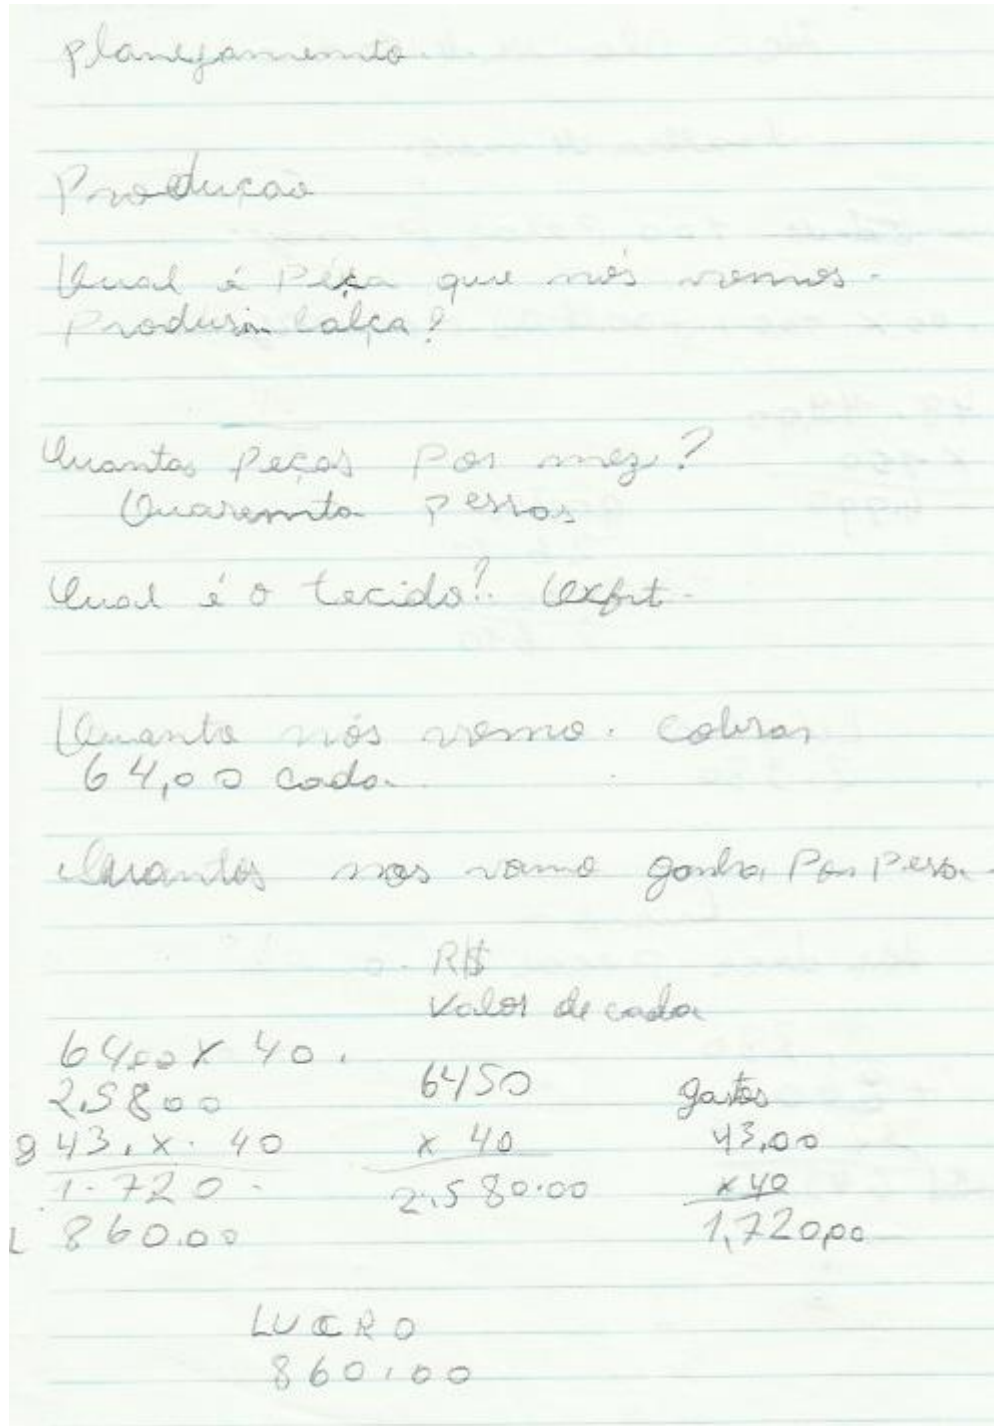 planejamento
Produção
Qual é Peça que nós vamos.
Produsin Calça?
Quantas Peças Por mez?
Quarenta Pessas
Qual é o tecido? Oxfrt.
Quanto nós vamo. Cobrar
64,00 cada.
Quantos nos vamo ganha, Por Pesa.
R$
Valor de cada
6400 X 40.
2.5800
6450
gastos
g 43, x. 40
x 40
43,00
1.720.
2.580.00
x 40
L 860.00
1,720,00
LUCRO
860,00